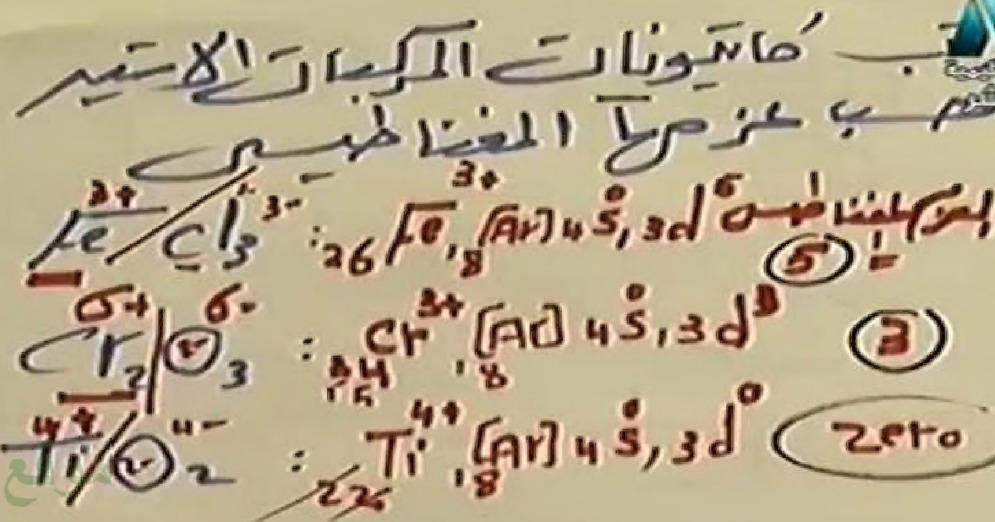 كاتيونات المركبات الاتية
حسب عزمها المغناطيسى
Fe³⁺/Cl₃³⁻ : ₂₆Fe³⁺, ₁₈[Ar] 4s⁰, 3d⁵ العزم المغناطيسى = 5
Cr₂⁶⁺/O₃⁶⁻ : ₂₄Cr³⁺, ₁₈[Ar] 4s⁰, 3d³ 3
Ti⁴⁺/O₂⁴⁻ : ₂₂Ti⁴⁺, ₁₈[Ar] 4s⁰, 3d⁰ Zero